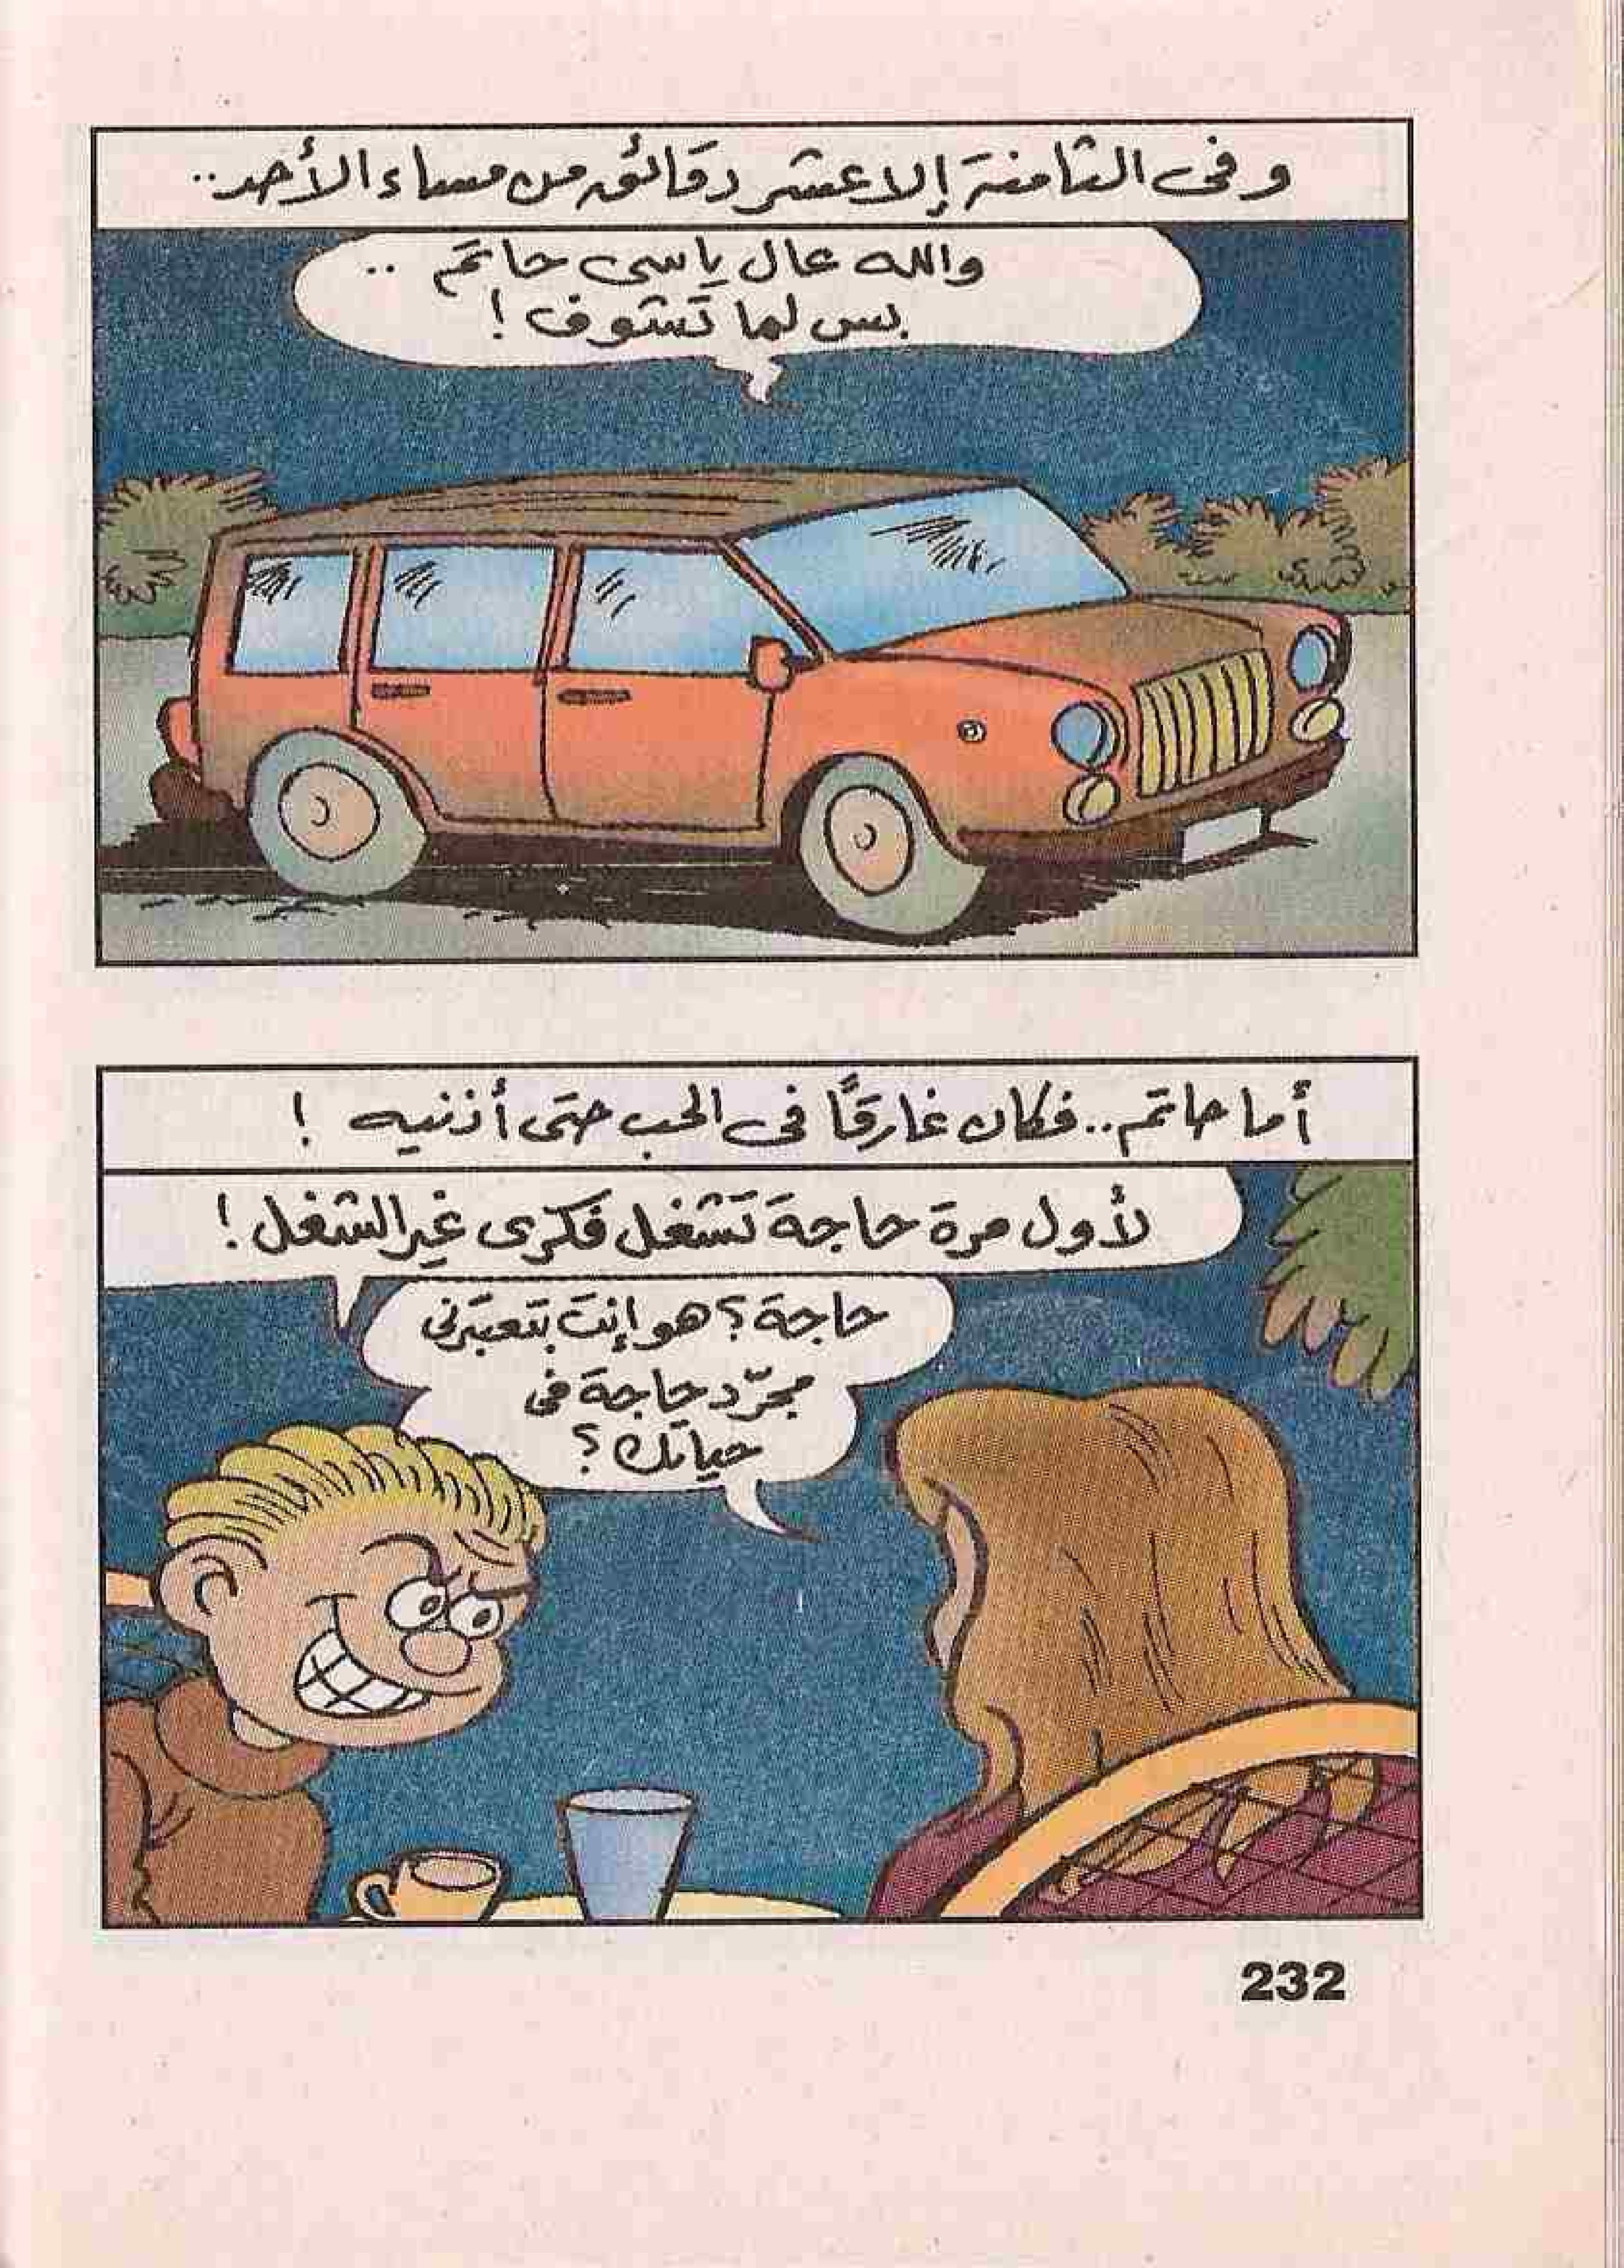 وفى الثامنة إلا عشر دقائق من مساء الأحد..
والله عال ياسى حاتم ..
بس لما تشوف !
أما حاتم.. فكان غارقًا فى الحب حتى أذنيه !
لأول مرة حاجة تشغل فكرى غير الشغل !
حاجة ؟ هو إنت بتعتبرنى
مجرّد حاجة فى
حياتك ؟
232